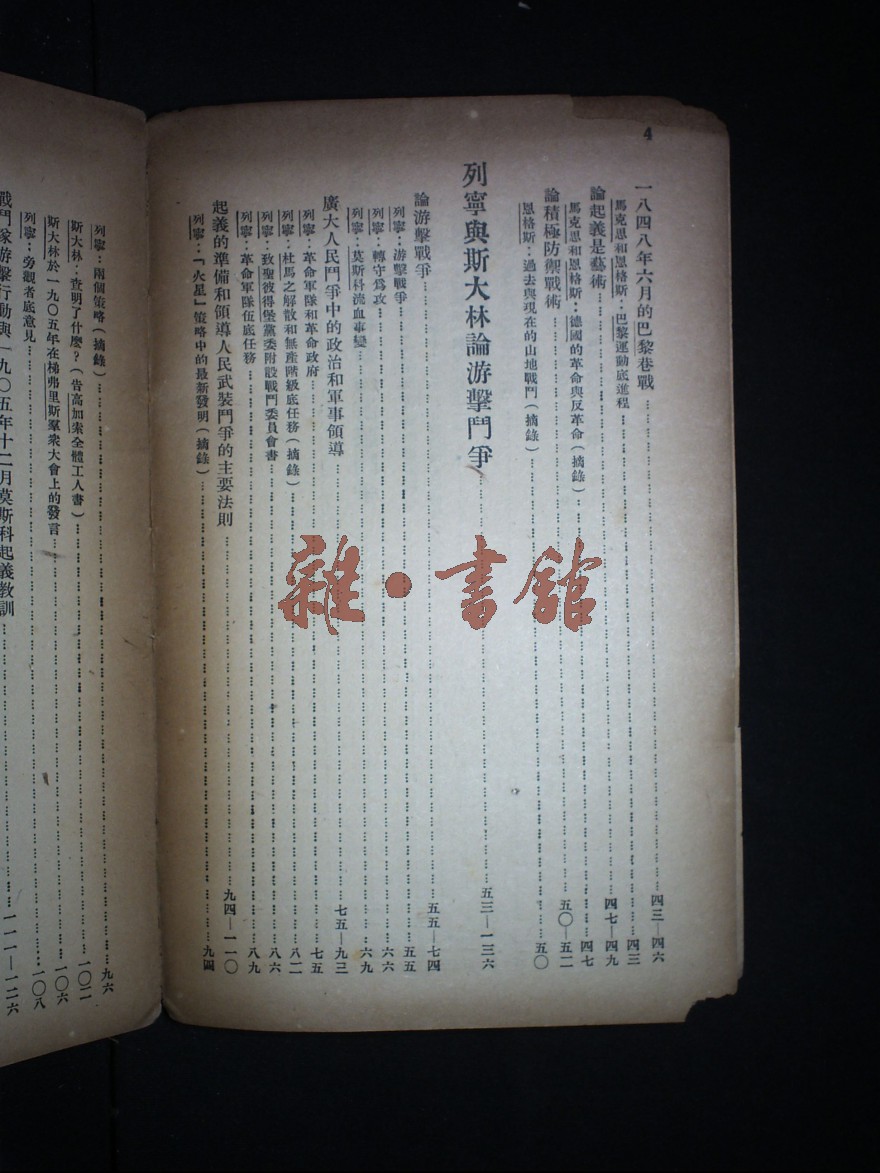 4
一八四八年六月的巴黎巷戰……四三—四六
馬克思和恩格斯：巴黎運動底進程……四三
論起義是藝術……四七—四九
馬克思和恩格斯：德國的革命與反革命（摘錄）……四七
論積極防禦戰術……五〇—五二
恩格斯：過去與現在的山地戰鬥（摘錄）……五〇
列寧與斯大林論游擊鬥爭……五三—一三六
論游擊戰爭……五五—七四
列寧：游擊戰爭……五五
列寧：轉守爲攻……六六
列寧：莫斯科流血事變……六九
廣大人民鬥爭中的政治和軍事領導……七五—九三
列寧：革命軍隊和革命政府……七五
列寧：杜馬之解散和無產階級底任務（摘錄）……八二
列寧：致聖彼得堡黨委附設戰鬥委員會書……八六
列寧：革命軍隊伍底任務……八九
起義的準備和領導人民武裝鬥爭的主要法則……九四—一一〇
列寧：「火星」策略中的最新發明（摘錄）……九四
列寧：兩個策略（摘錄）……九六
斯大林：查明了什麼？（告高加索全體工人書）……一〇二
斯大林於一九〇五年在梯弗里斯羣衆大會上的發言……一〇六
列寧：旁觀者底意見……一〇八
戰鬥隊游擊行動與一九〇五年十二月莫斯科起義教訓……一一一—一二六
雜·書館